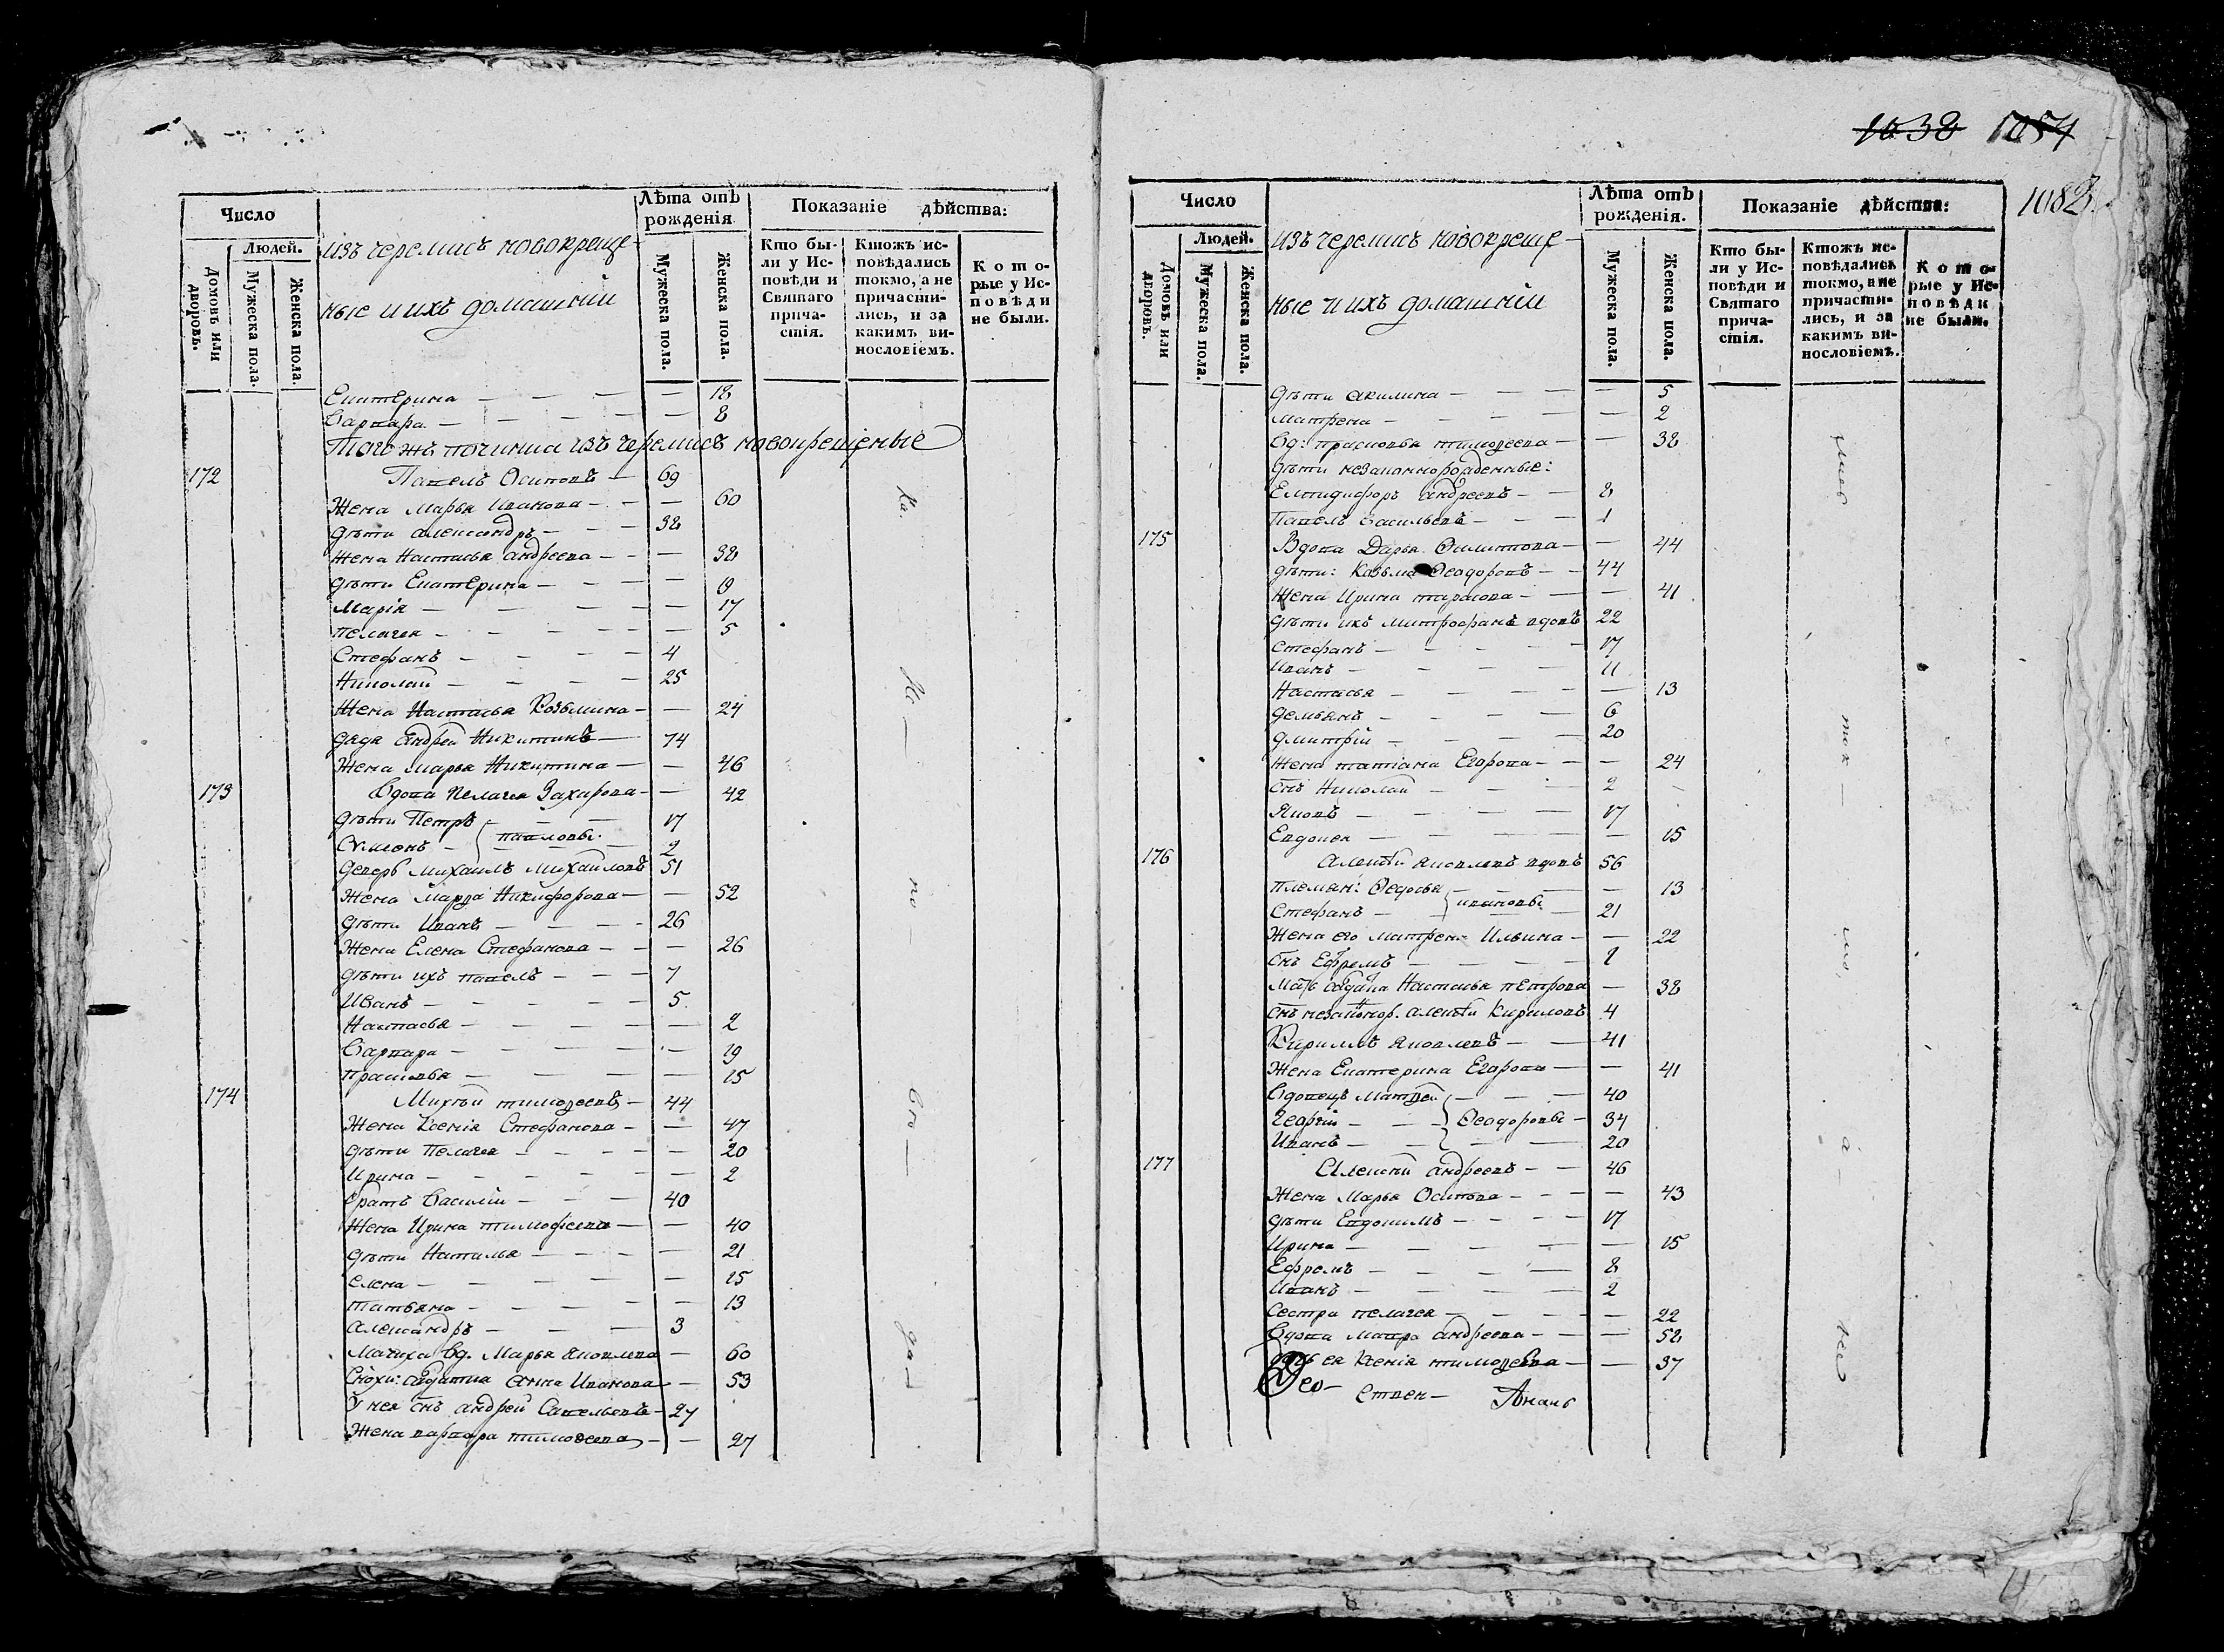 1038 1054
1082
Число
Людей.
Домовъ или дворовъ.
Мужеска пола.
Женска пола.
Изъ черемисъ новокреще-
ные и ихъ домашнiи
Лѣта отъ рожденiя
Мужеска пола.
Женска пола.
Показанiе дѣйства:
Кто бы-
ли у Ис-
повѣди и
Святаго
прича-
стiя.
Ктожъ ис-
повѣдались
токмо, а не
причасти-
лись, и за
какимъ ви-
нословiемъ.
Кото-
рые у Ис-
повѣди
не были.
Екатерина — — — — 18
Варвара — — — — 8
Того жъ починка изъ черемисъ новокрещеные
172 Павелъ Осиповъ — 69
Жена Марья Иванова — — 60
Дѣти Александръ — — 38
Жена Настасья Андреева — — 38
Дѣти Екатерина — — — 9
Марiя — — — — 17
Пелагея — — — — 5
Стефанъ — — — 4
Николай — — — 25
Жена Настасья Козьмина — — 24
Дядя Андрей Никитинъ — 74
Жена Марья Никитина — — 46
173 Вдова Пелагея Захарова — — 42
Дѣти Петръ — — 17
Симеонъ — Павловы — 2
Деверь Михаилъ Михайловъ 51
Жена Марѳа Никифорова — — 52
Дѣти Иванъ — — — 26
Жена Елена Стефанова — — 26
Дѣти ихъ Павелъ — — 7
Иванъ — — — — 5
Настасья — — — — 2
Варвара — — — — 19
Прасковья — — — — 15
174 Михѣй Тимоѳеевъ — 44
Жена Ксенiя Стефанова — — 47
Дѣти Пелагея — — — 20
Ирина — — — — 2
Братъ Василiй — — — 40
Жена Ирина Тимофеева — — 40
Дѣти Наталья — — — 21
Елена — — — — 15
Татьяна — — — — 13
Александръ — — — 3
Мачиха вд. Марья Яковлева — 60
Сноха: солдатка Анна Иванова — 53
У нея снъ Андрей Савельевъ — 27
Жена Варвара Тимоѳеева — — 27
Число
Людей.
Домовъ или дворовъ.
Мужеска пола.
Женска пола.
Изъ черемисъ новокреще-
ные и ихъ домашнiи
Лѣта отъ рожденiя.
Мужеска пола.
Женска пола.
Показанiе дѣйства:
Кто бы-
ли у Ис-
повѣди и
Святаго
прича-
стiя.
Ктожъ ис-
повѣдались
токмо, а не
причасти-
лись, и за
какимъ ви-
нословiемъ.
Кото-
рые у Ис-
повѣди
не были.
Дѣти Акилина — — — 5
Матрена — — — — 2
Вд: Прасковья Тимоѳеева — — 38
Дѣти незаконнорожденные:
Елпидифоръ Андреевъ — — 8
Павелъ Васильевъ — — — 1
175 Вдова Дарья Филиппова — — 44
Дѣти: Козьма Ѳеодоровъ — — 44
Жена Ирина Тарасова — — 41
Дѣти ихъ Митрофанъ вдовъ 22
Стефанъ — — — — 17
Иванъ — — — — 11
Настасья — — — — 13
Демьянъ — — — 6
Дмитрiй — — — — 20
Жена Татiана Егорова — — 24
Снъ Николай — — — 2
Яковъ — — — — 17
Евдокея — — — — 15
176 Алексѣй Яковлевъ вдовъ 56
Племян: Ѳедосья — — — 13
Стефанъ — Ивановы — 21
Жена его Матрена Ильина — — 22
Снъ Ефремъ — — — — 1
Мать солдатка Настасья Петрова — 38
Снъ незаконор. Алексѣй Кириловъ 4
Кирилъ Яковлевъ — — 41
Жена Екатерина Егорова — — 41
Вдовецъ Матвей — — — 40
Георгiй — — Ѳеодоровы — 34
Иванъ — — — — 20
177 Алексѣй Андреевъ — — 46
Жена Марья Осипова — — — 43
Дѣти Евдокимъ — — — 17
Ирина — — — — 15
Ефремъ — — — — 8
Иванъ — — — — 2
Сестра Пелагея — — — — 22
Вдова Мавра Андреева — — — 58
Дочь ея Ксенiя Тимоѳеева — — 37